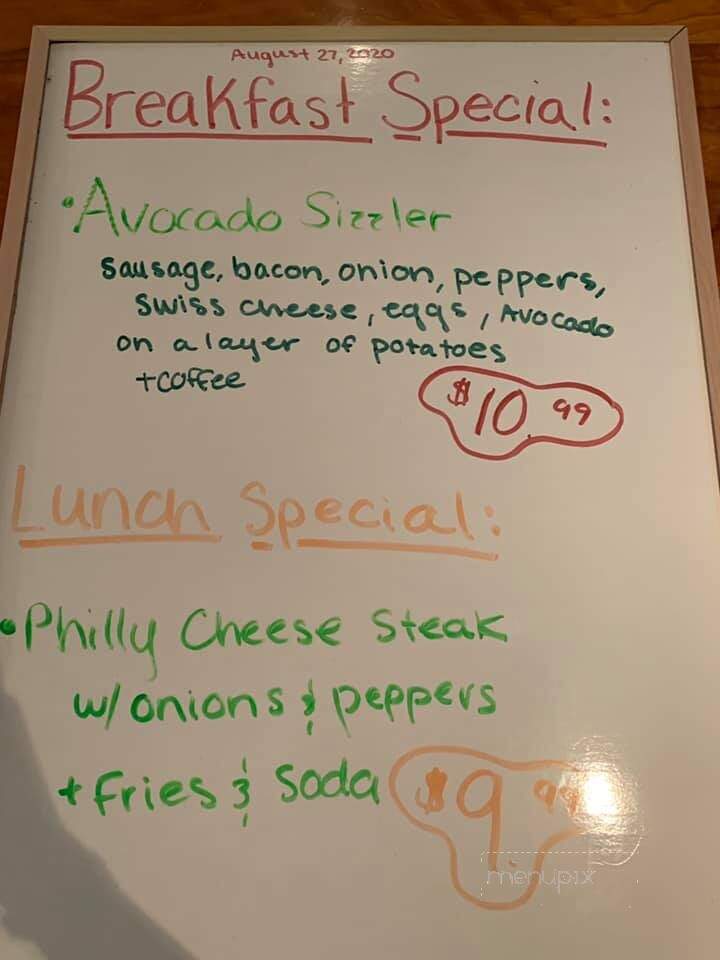 August 27, 2020
Breakfast Special:
• Avocado Sizzler
sausage, bacon, onion, peppers,
swiss cheese, eggs, Avocado
on a layer of potatoes
+coffee
$10.99
Lunch Special:
• Philly Cheese Steak
w/ onions & peppers
+ fries & soda
$9.99
menupix